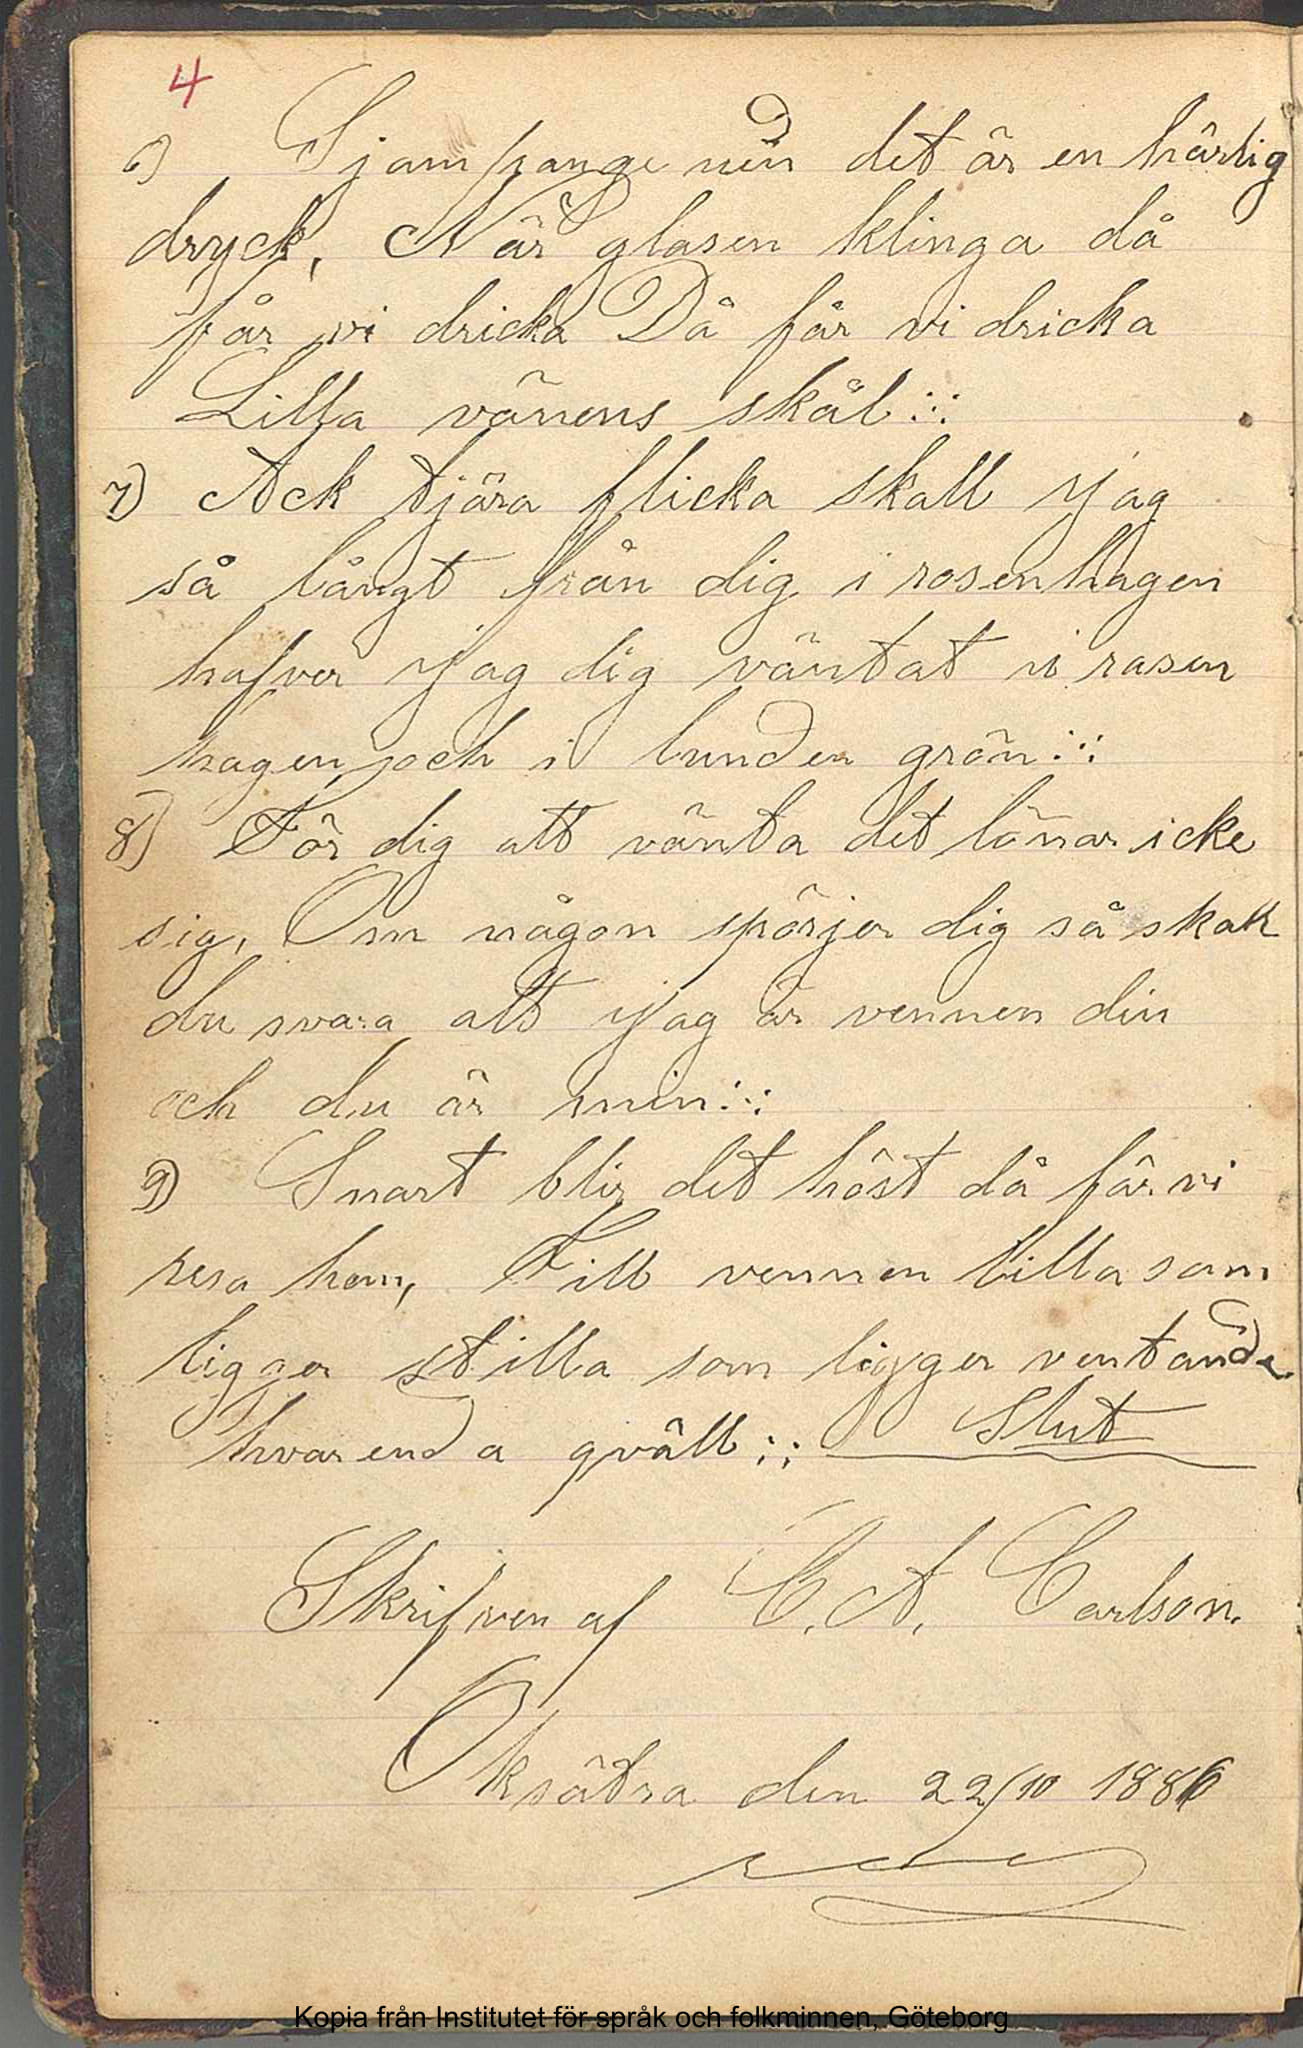 4
6) Sjampange vin det är en härlig
dryck, När glasen klinga då
får vi dricka Då får vi dricka
Lilla vänens skål :::
7) Ack tjära flicka skall yjag
så långt från dig i rosenhagen
hafver yjag dig väntat i rosen
hagen och i lunden grön :::
8) För dig att vänta det lönar icke
sig, Om någon spörjer dig så skall
du svara att yjag är vennen din
och du är min :::
9) Snart blir det höst då får vi
resa hem, Till vennen lilla som
ligger stilla som ligger ventande
hvarenda qväll ::: Slut
Skrifven af C. A. Carlson.
Oksätra den 22/10 1886
Kopia från Institutet för språk och folkminnen, Göteborg